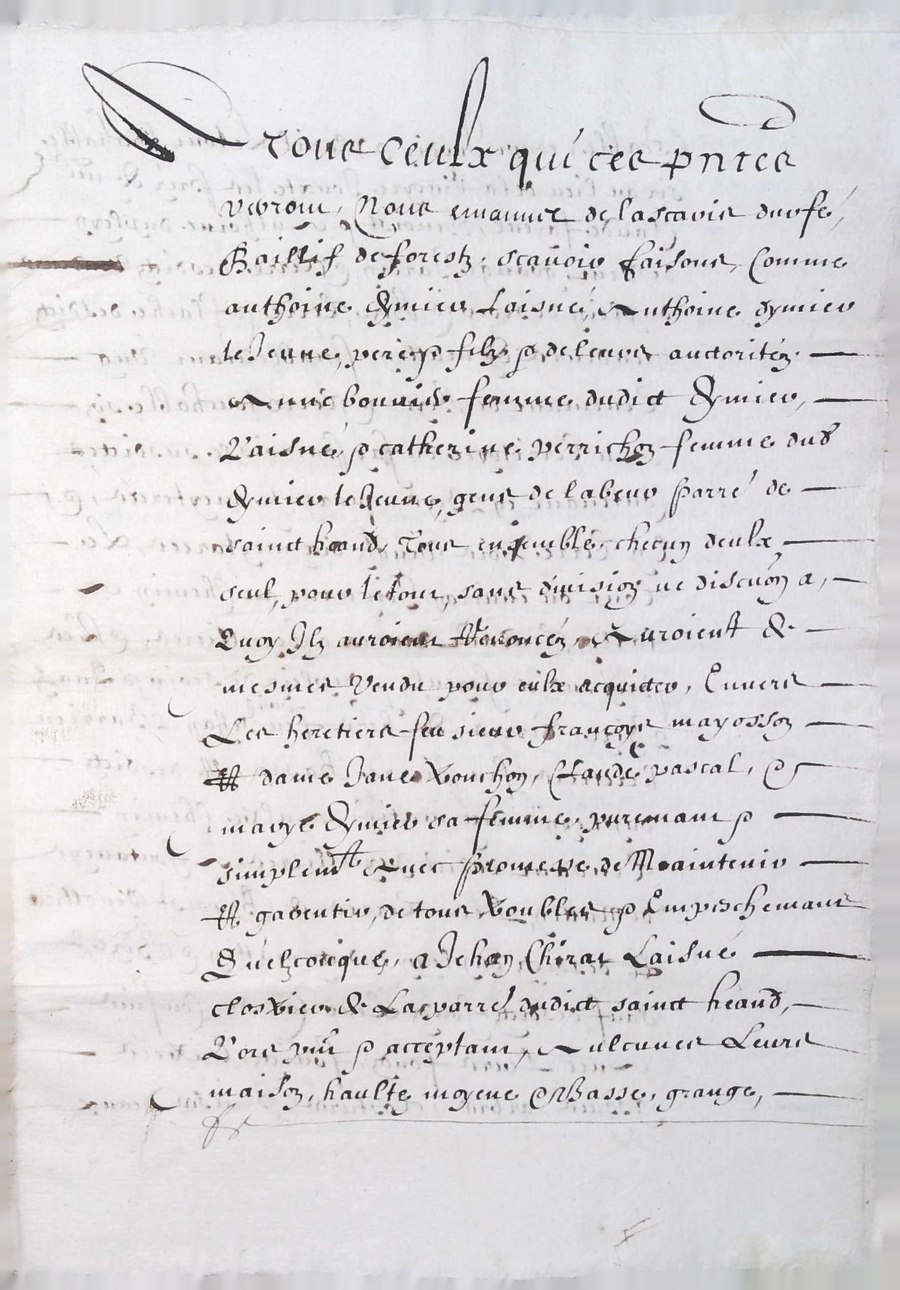 A tous ceulx qui ces pntes
verront, Nous emanuel de lascaris durfé,
Baillif de forestz, scavoir faisons, Comme
anthoine Eymier Laisné, Anthoine Eymier
le Jeune, pere & filz & de leurs auctoritéz
Anne femme dudict Eymier,
L'aisné, & catherine perrichon femme dud
Eymier le Jeune, gens de labeur parré de
sainct heand, Tous ensemble, checun deulx,
seul, pour le tout, sans division ne discuon a,
Quoy Ilz auroient Renoncéz, Auroient &
mesmes Vendu pour eulx acquicter, Envers
Les heretiers feu sieur françoys mayosson
Et dame Jane, Claude pascal, &
marye Eymier sa femme, puremant &
simplemt Avec promesse de Maintenir
Et garentir, de tous troubles & Empeschemans
Quelzconques, a Jehan Chirat Laisné
closvier de Lacparrel dudict sainct heand,
Lors pnt & acceptant, Aulcunes Leurs
maison, haulte moyene & Basse, grange,